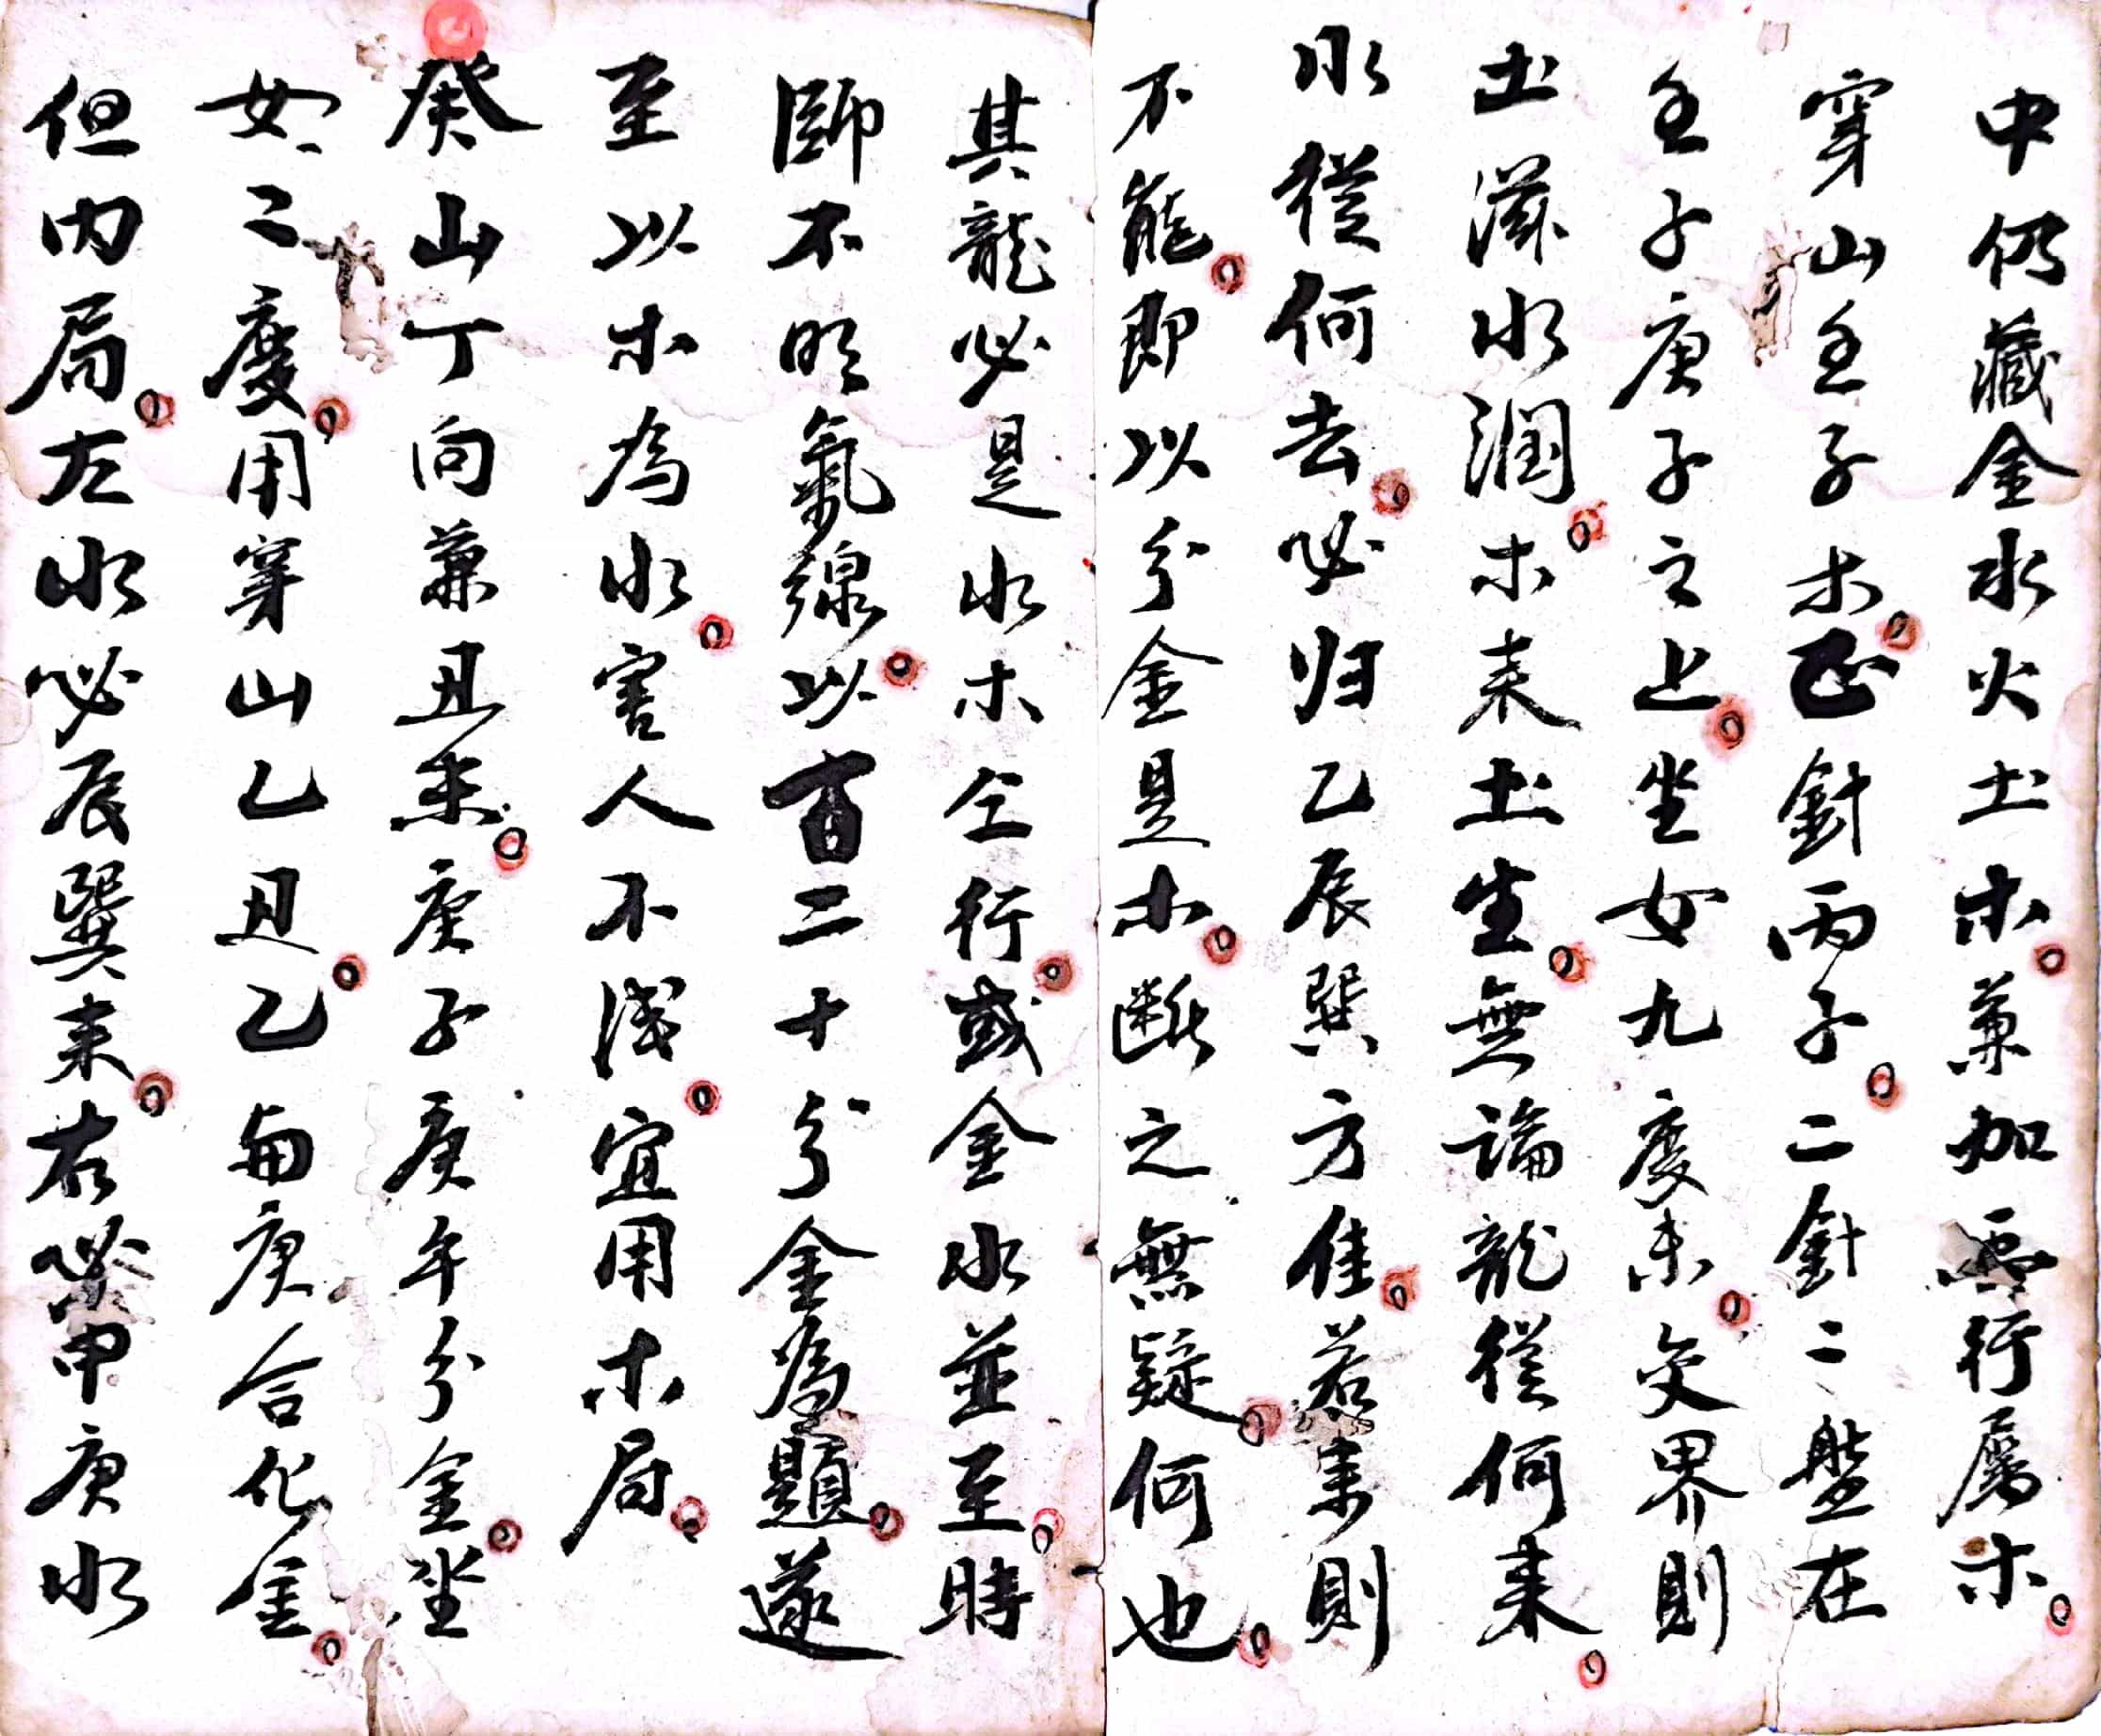 中仍藏金水火土木。兼加五行屬木。
穿山壬子木。正針丙子。二針二盤在
壬子庚子之上。坐女九度未。交界則
土滋水潤。木来土生。無論龍從何来。
水從何去。必归乙辰巽方佳。若未則
不能。即以分金是木。斷之無疑。何也。
其龍必是水木仝行。或金水並至。時
師不明氣線。以百二十分金為題。遂
至以木為水。害人不浅。宜用木局。
癸山丁向兼丑未。庚子庚午分金。坐
女二度。用穿山乙丑。乙与庚合化金。
但内局。左水必辰巽来。右必甲庚水